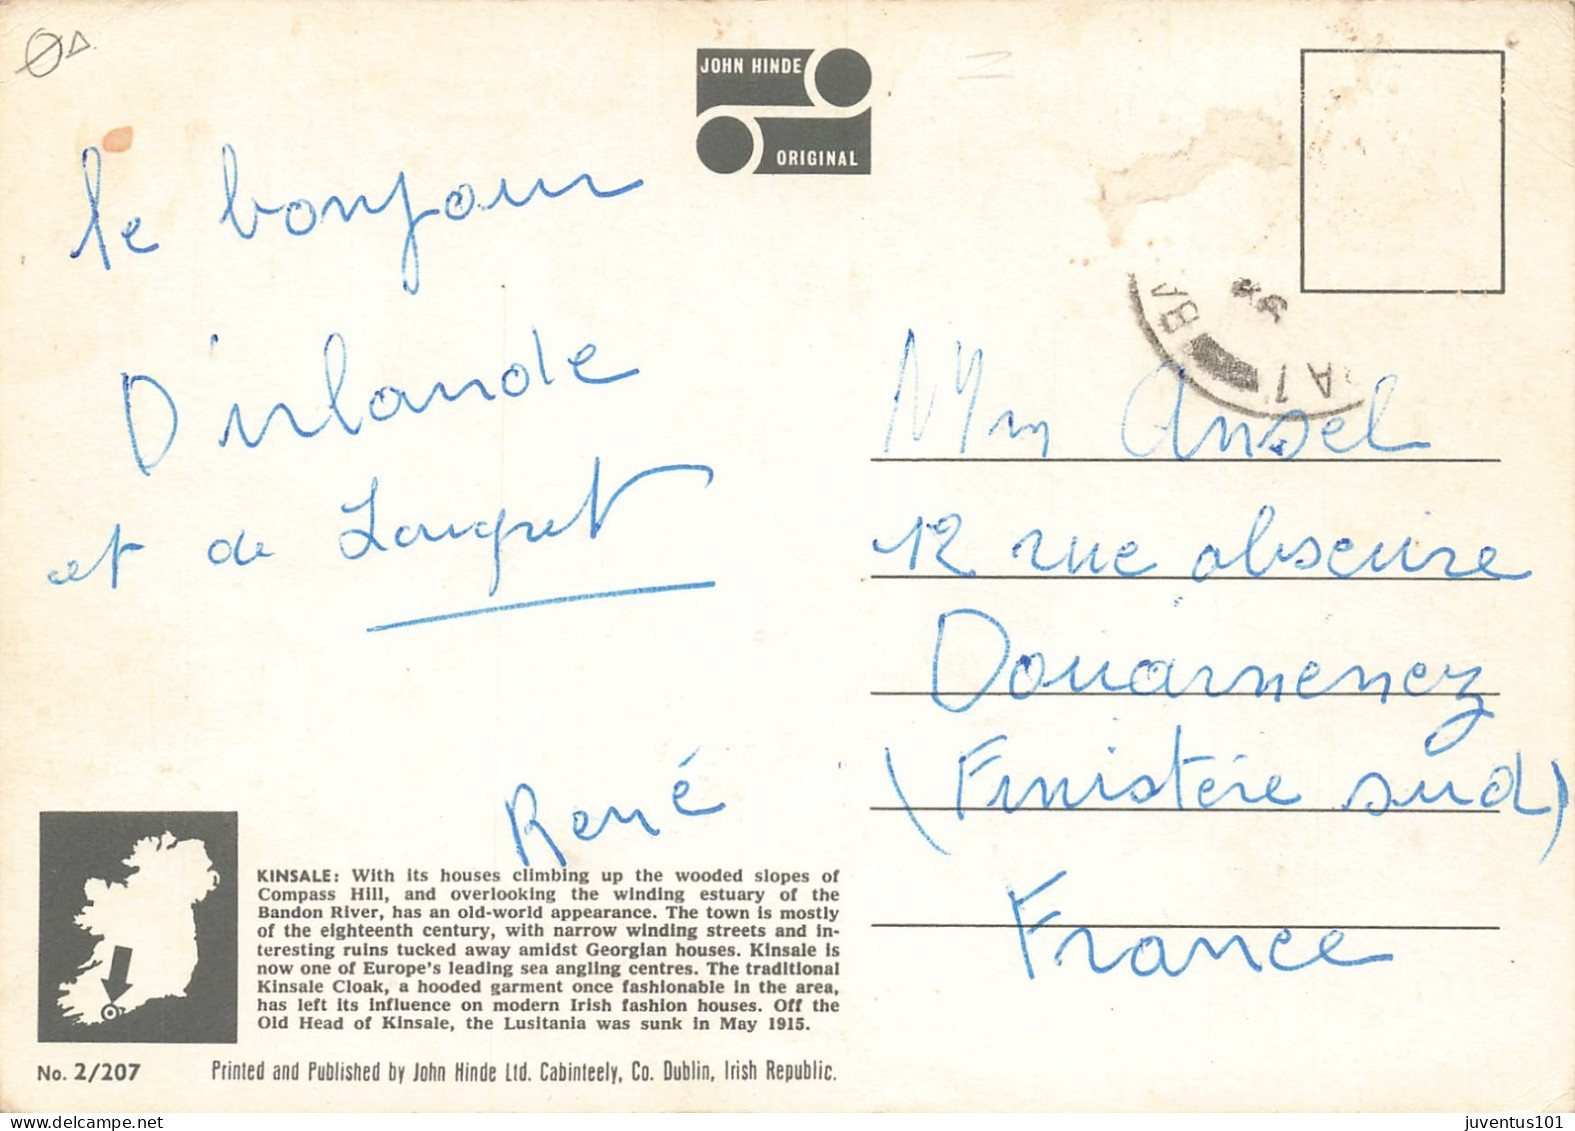 JOHN HINDE
ORIGINAL
le bonjour
D'irlande
et de
René
Ansel
12 rue obscure
Douarnenez
(Finistère sud)
France
KINSALE: With its houses climbing up the wooded slopes of
Compass Hill, and overlooking the winding estuary of the
Bandon River, has an old-world appearance. The town is mostly
of the eighteenth century, with narrow winding streets and in-
teresting ruins tucked away amidst Georgian houses. Kinsale is
now one of Europe's leading sea angling centres. The traditional
Kinsale Cloak, a hooded garment once fashionable in the area,
has left its influence on modern Irish fashion houses. Off the
Old Head of Kinsale, the Lusitania was sunk in May 1915.
No. 2/207
Printed and Published by John Hinde Ltd. Cabinteely, Co. Dublin, Irish Republic.
juventus101